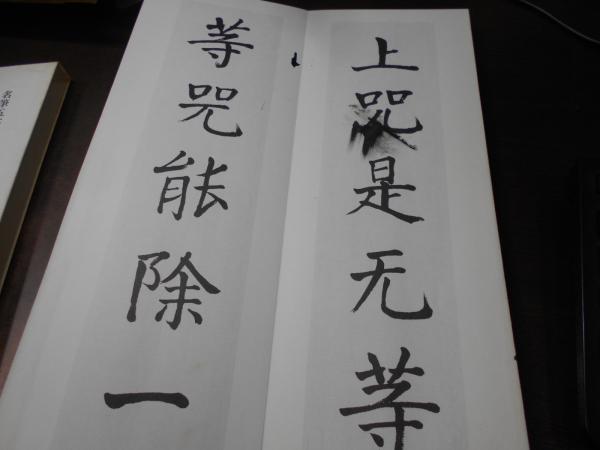 上咒是无等
等咒能除一
名筆